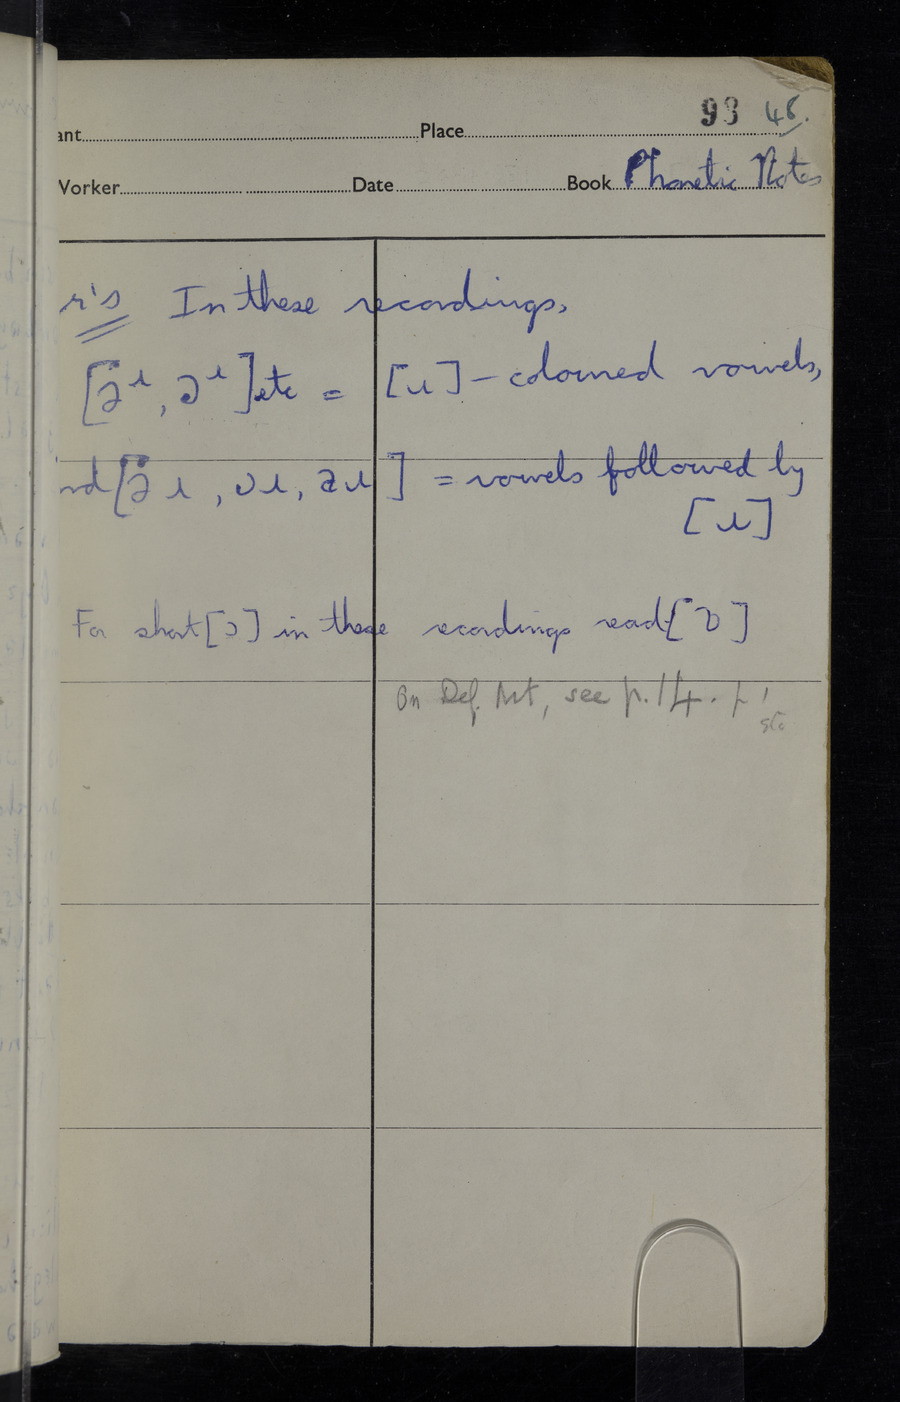 93 46.
ant Place
Vorker Date Book Phonetic Notes
r's In these recordings,
[ə̈ɹ, ɔɹ] etc = [ɹ] - coloured vowels,
nd [ə̈ɹ, ɔɹ, aɹ] = vowels followed by
[ɹ]
For short [ɔ] in these recordings read [ɒ]
On Def. Art, see p.14.